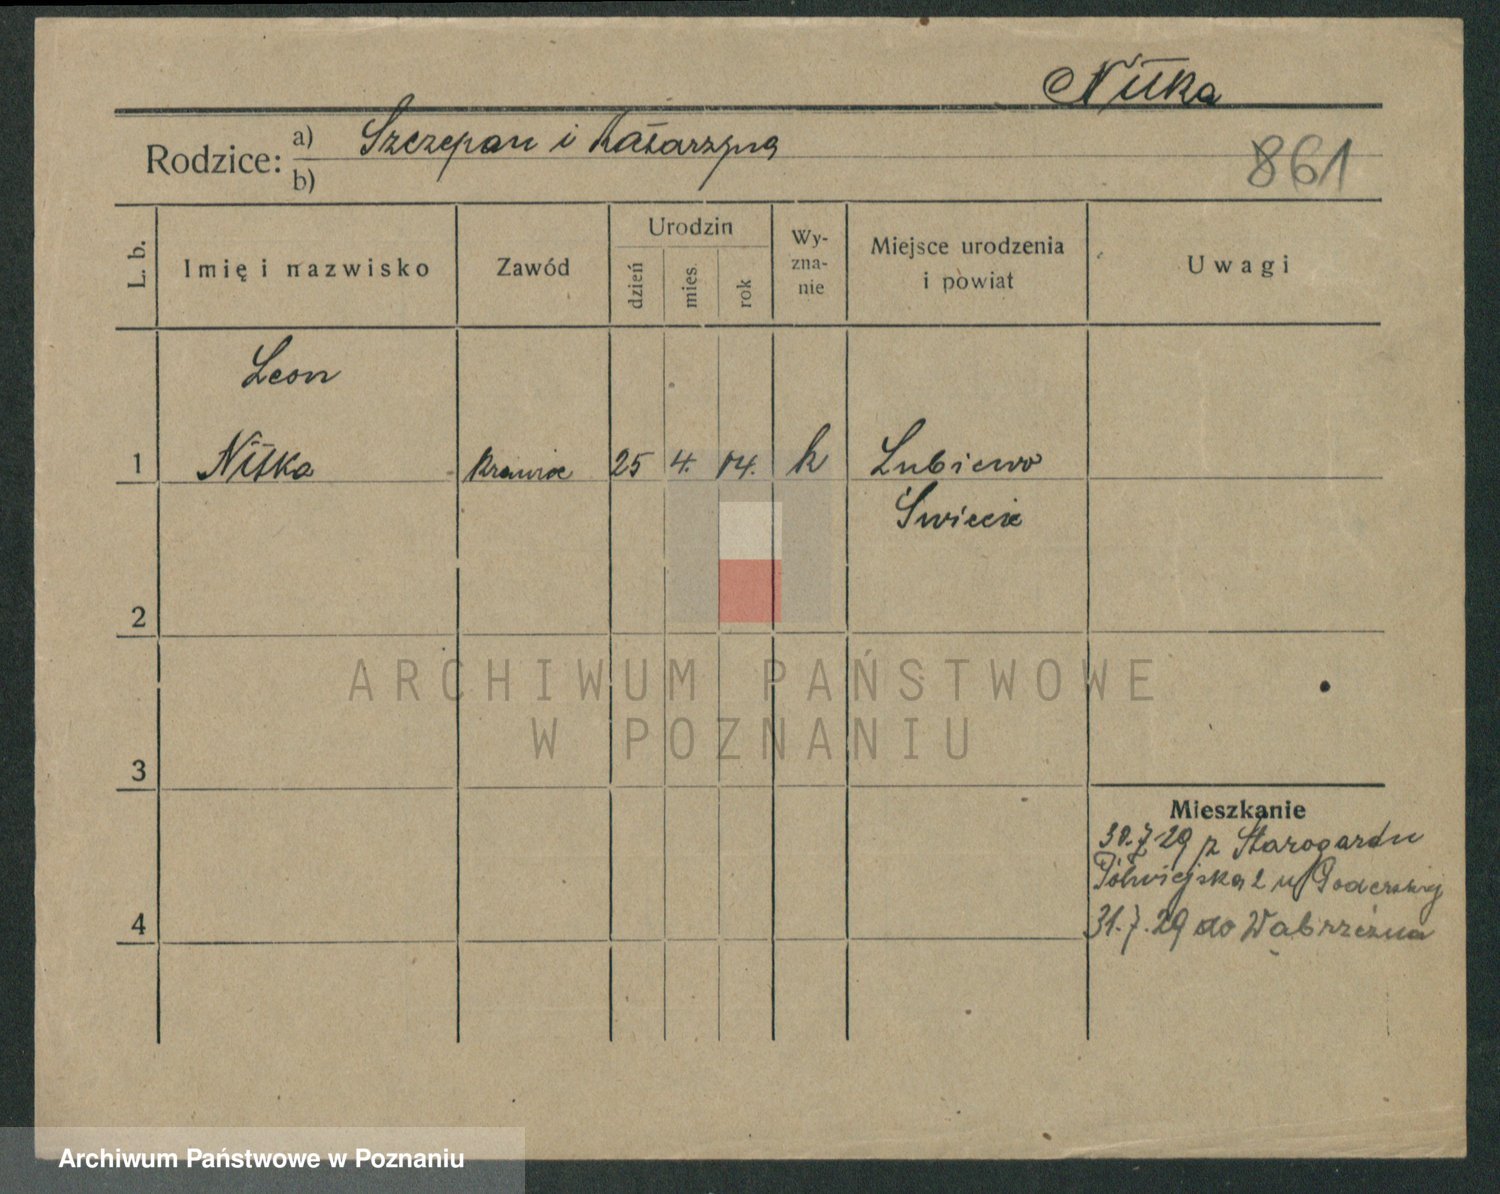 Nitka
Rodzice: a) Szczepan i Katarzyna
b)
861
L. b.
Imię i nazwisko
Zawód
Urodzin
dzień
mies.
rok
Wy-
zna-
nie
Miejsce urodzenia
i powiat
Uwagi
Leon
1 Nitka krawiec 25 4. 04. k Lubiewo
Świecie
2
3
4
Mieszkanie
30.7.29 z Starogardu
Półwiejska 2 u
31.7.29 do Wąbrzeźna
ARCHIWUM PAŃSTWOWE
W POZNANIU
Archiwum Państwowe w Poznaniu